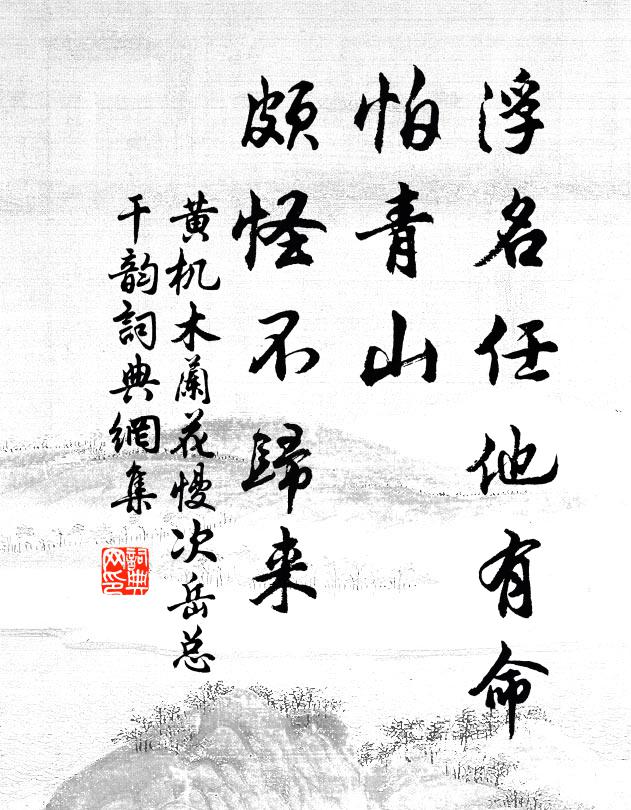 浮名任他有命
怕青山
頗怪不歸来
黄机木蘭花慢次岳总
干韵詞典網集
詞典网印